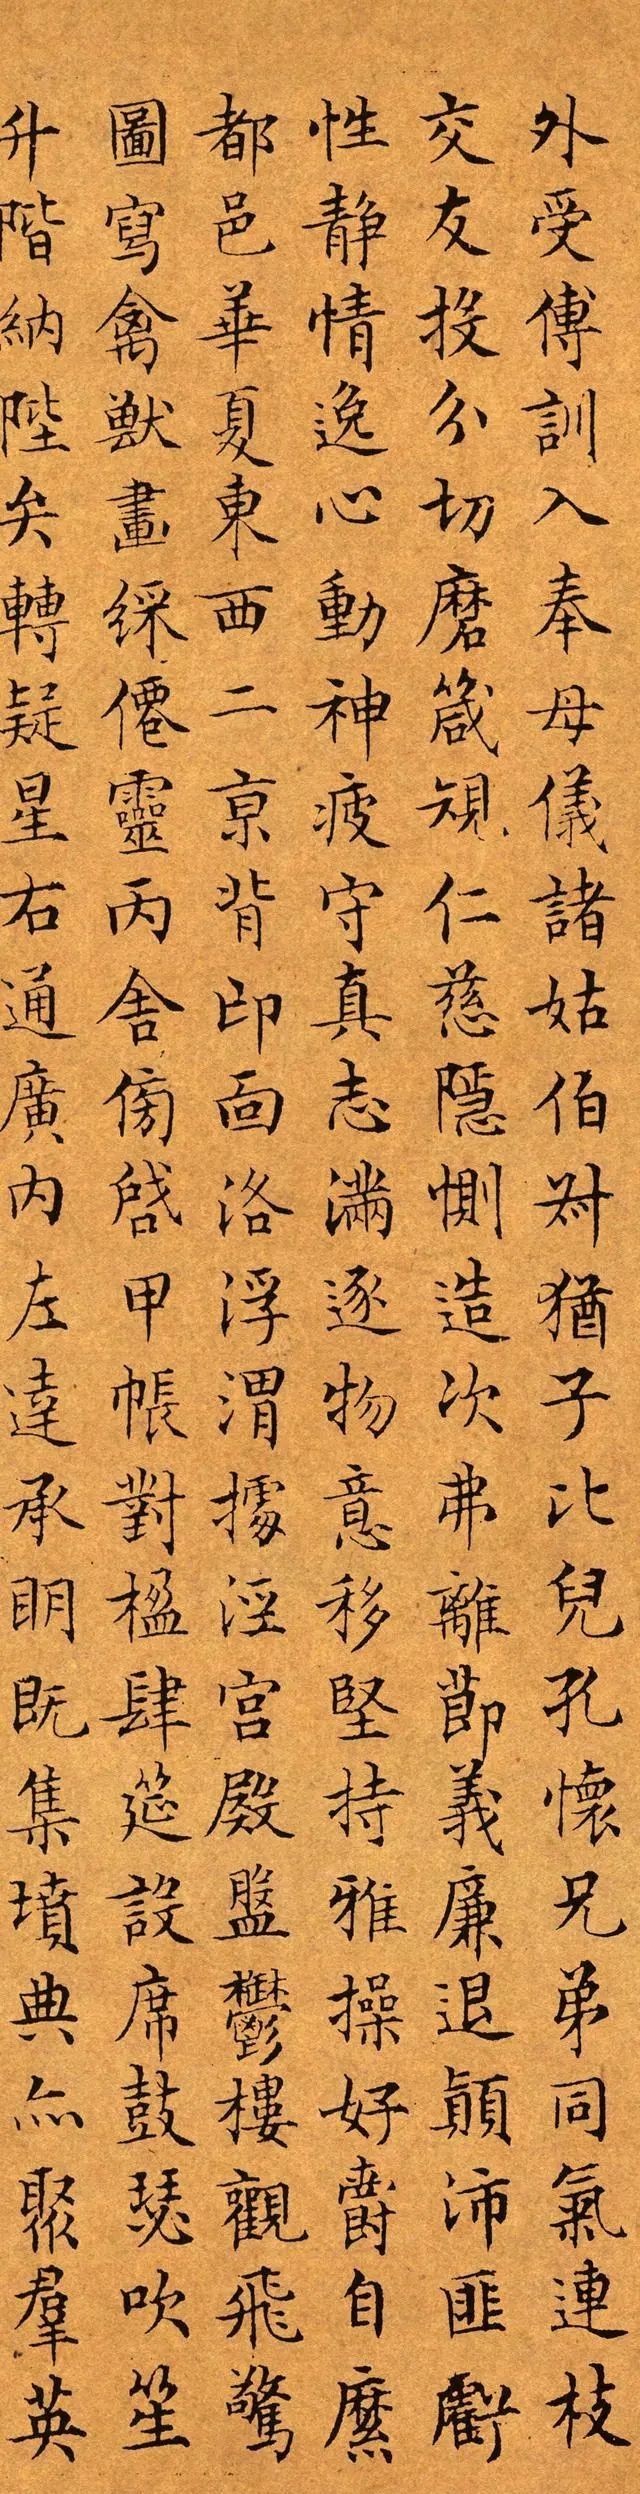 外受傅訓入奉母儀諸姑伯叔猶子比兒孔懷兄弟同氣連枝
交友投分切磨箴規仁慈隱惻造次弗離節義廉退顛沛匪虧
性静情逸心動神疲守真志滿逐物意移堅持雅操好爵自縻
都邑華夏東西二京背邙面洛浮渭據涇宮殿盤鬱樓觀飛驚
圖寫禽獸畫綵僊靈丙舍傍啓甲帳對楹肆筵設席鼓瑟吹笙
升階納陛弁轉疑星右通廣內左達承明既集墳典亦聚羣英